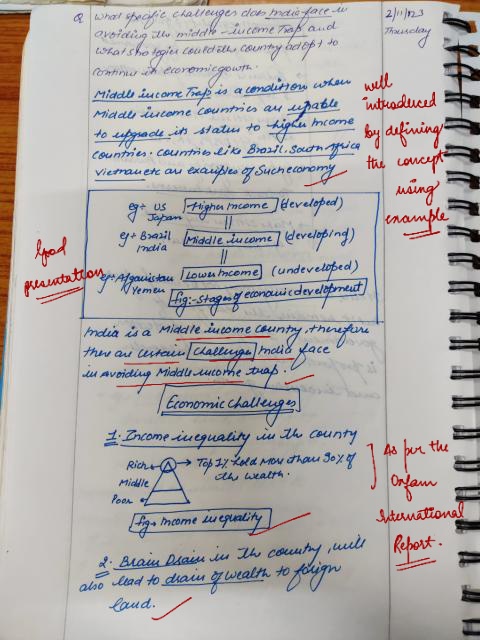 Q What specific challenges does India face in
avoiding the middle-income Trap and
what strategies could the country adopt to
continue its economic growth.
2/11/23
Thursday
Middle income Trap is a condition when
Middle income countries are unable
to upgrade its status to higher Income
countries. Countries like Brazil, South Africa
Vietnam etc are examples of such economy
well
introduced
By defining
the concept
using
example
Good
presentation
eg:- US
Japan
Higher Income
(developed)
eg:- Brazil
India
Middle income
(developing)
eg:- Afganistan
Yemen
Lower Income
(undeveloped)
fig:- Stages of economic development
India is a Middle income country, therefore
there are certain Challenges India face
in avoiding Middle income trap.
Economic Challenges
1. Income inequality in the country
Rich
Middle
Poor
Top 1% hold More than 90% of
the wealth.
fig:- Income inequality
As per the
Oxfam
International
Report.
2. Brain Drain in the country, will
also lead to drain of wealth to foreign
land.